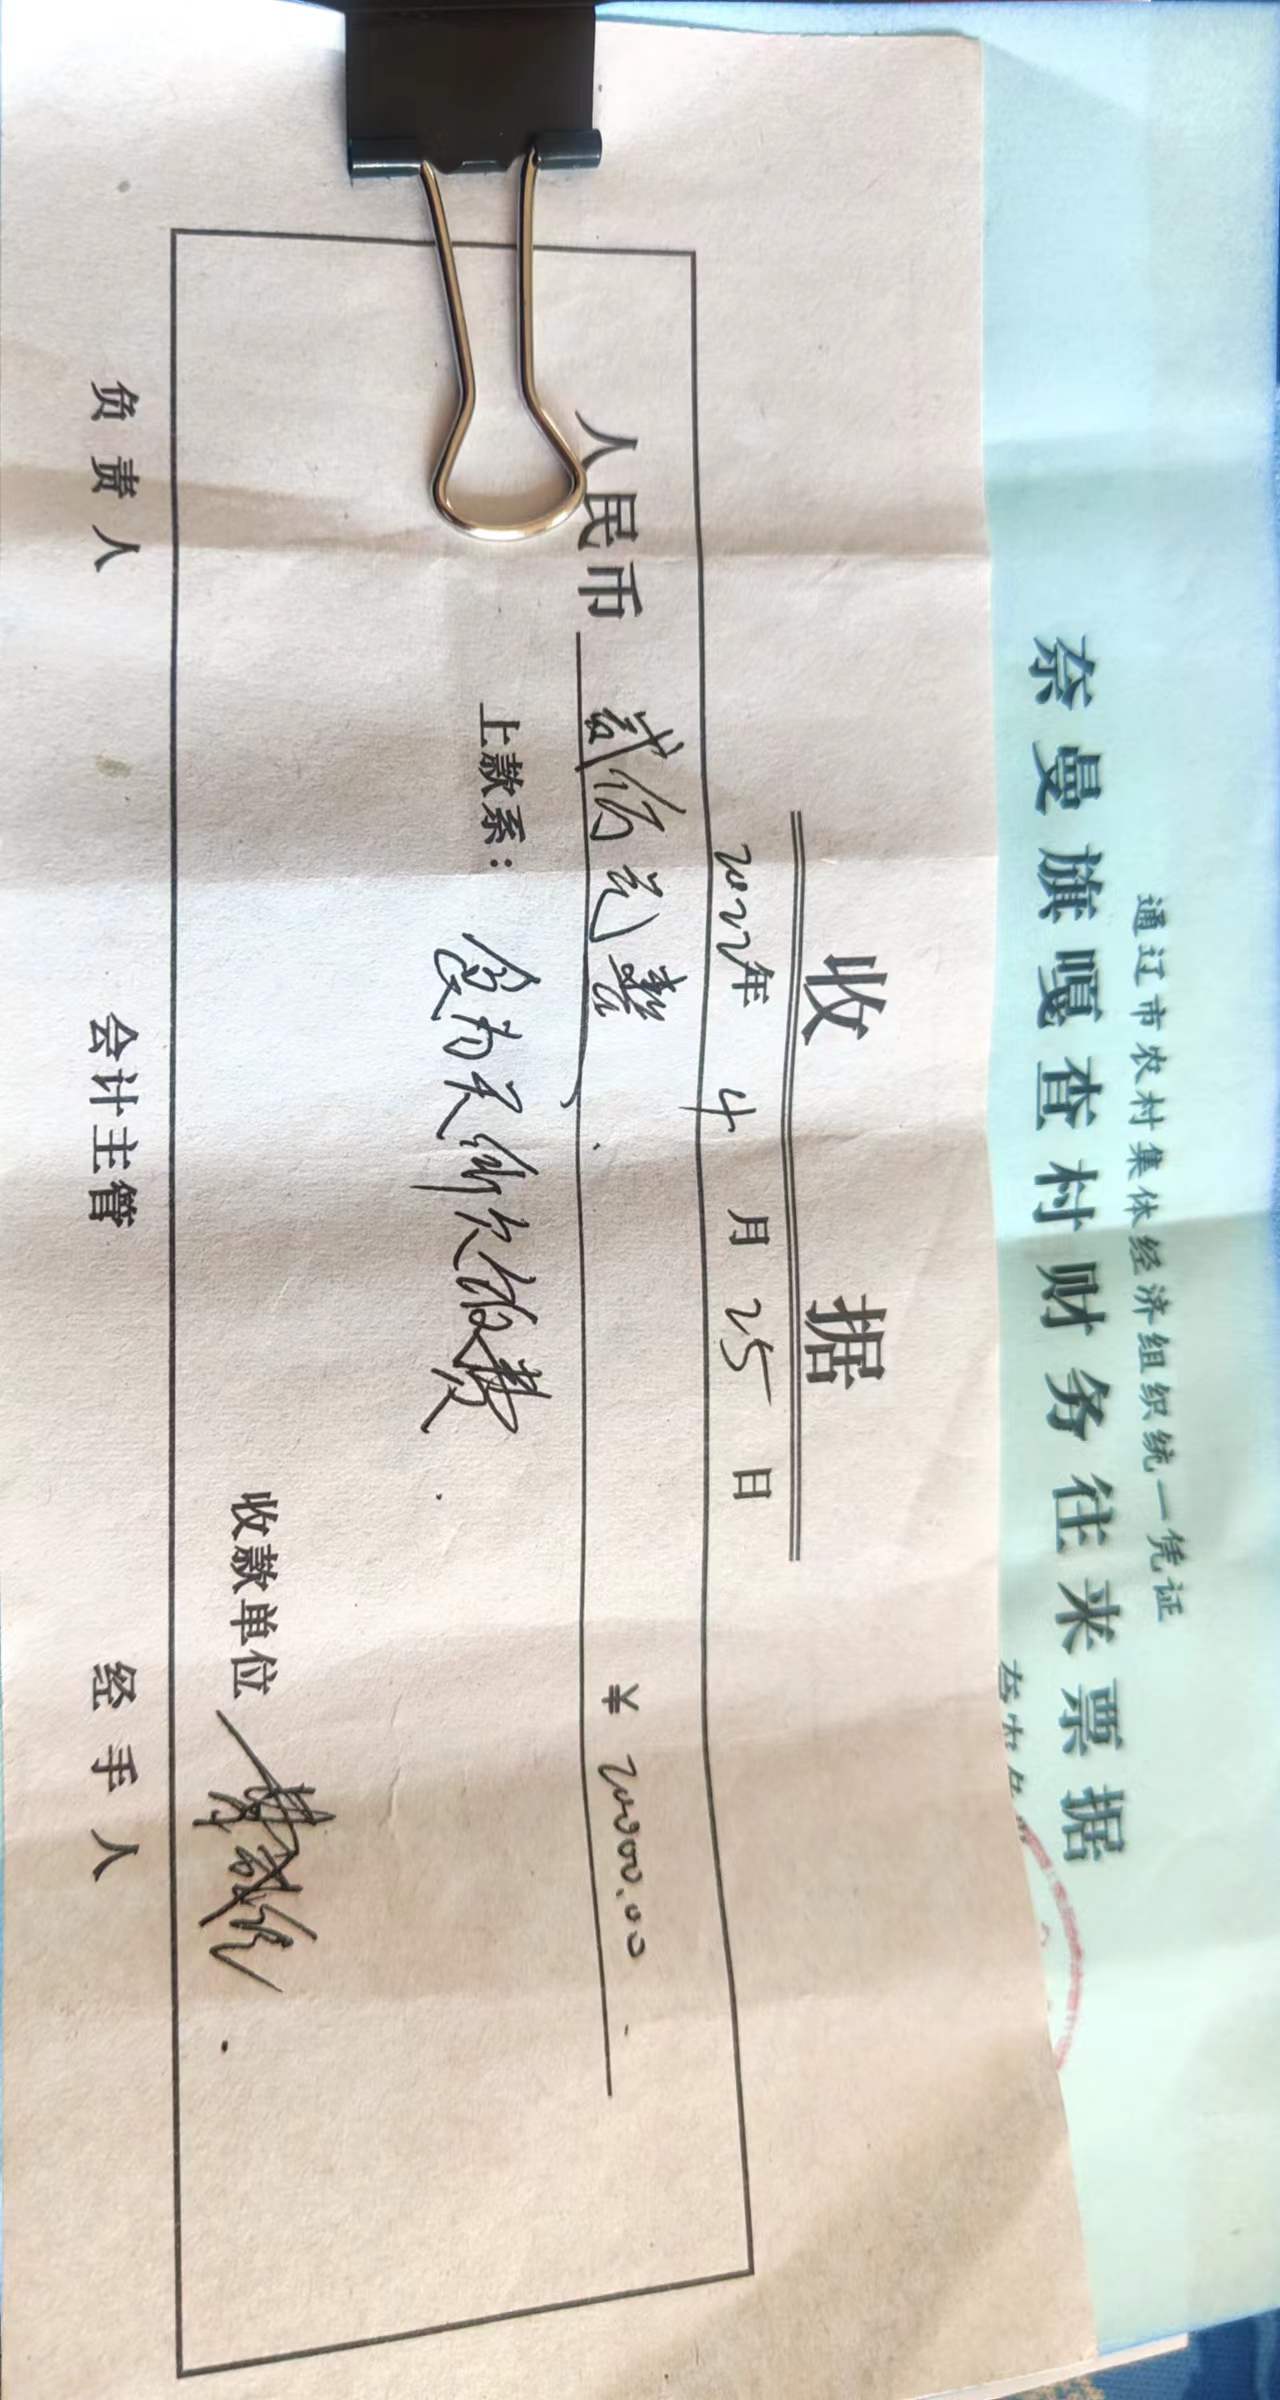 通辽市农村集体经济组织统一凭证
奈曼旗嘎查村财务往来票据
收据
2022年 4月 25日
人民币 贰仟元整 ¥ 2000.00
上款系：
收款单位
负责人 会计主管 经手人